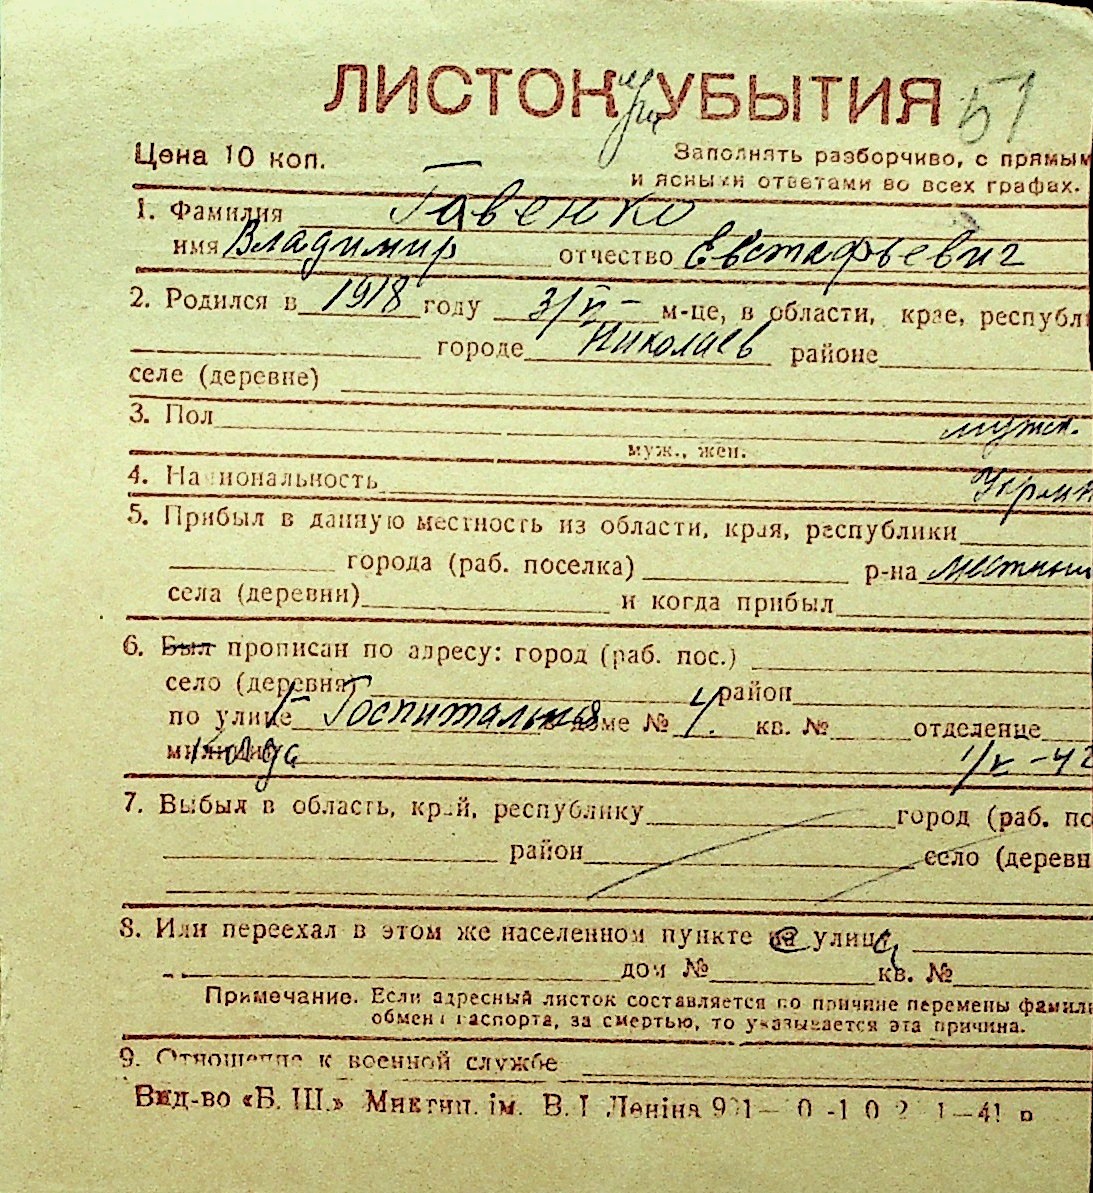 ЛИСТОК УБЫТИЯ 51
Цена 10 коп.
Заполнять разборчиво, с прямым
и ясными ответами во всех графах.
1. Фамилия Гавенко
имя Владимир отчество Евстафьевич
2. Родился в 1918 году 3/V- м-це, в области, крае, республи
городе Николаев районе
селе (деревне)
3. Пол мужск.
муж., жен.
4. Национальность Украин
5. Прибыл в данную местность из области, края, республики
города (раб. поселка) р-на местный
села (деревни) и когда прибыл
6. Был прописан по адресу: город (раб. пос.)
село (деревня) район
по улице Госпитальная в доме № 4. кв. № отделение
милиции 1/V-42
7. Выбыл в область, край, республику город (раб. по
район село (деревн
8. Или переехал в этом же населенном пункте с улицы
дом № кв. №
Примечание. Если адресный листок составляется по причине перемены фамили
обмена паспорта, за смертью, то указывается эта причина.
9. Отношение к военной службе
Вид-во «Б. Ш.» Миктип. ім. В. І Леніна